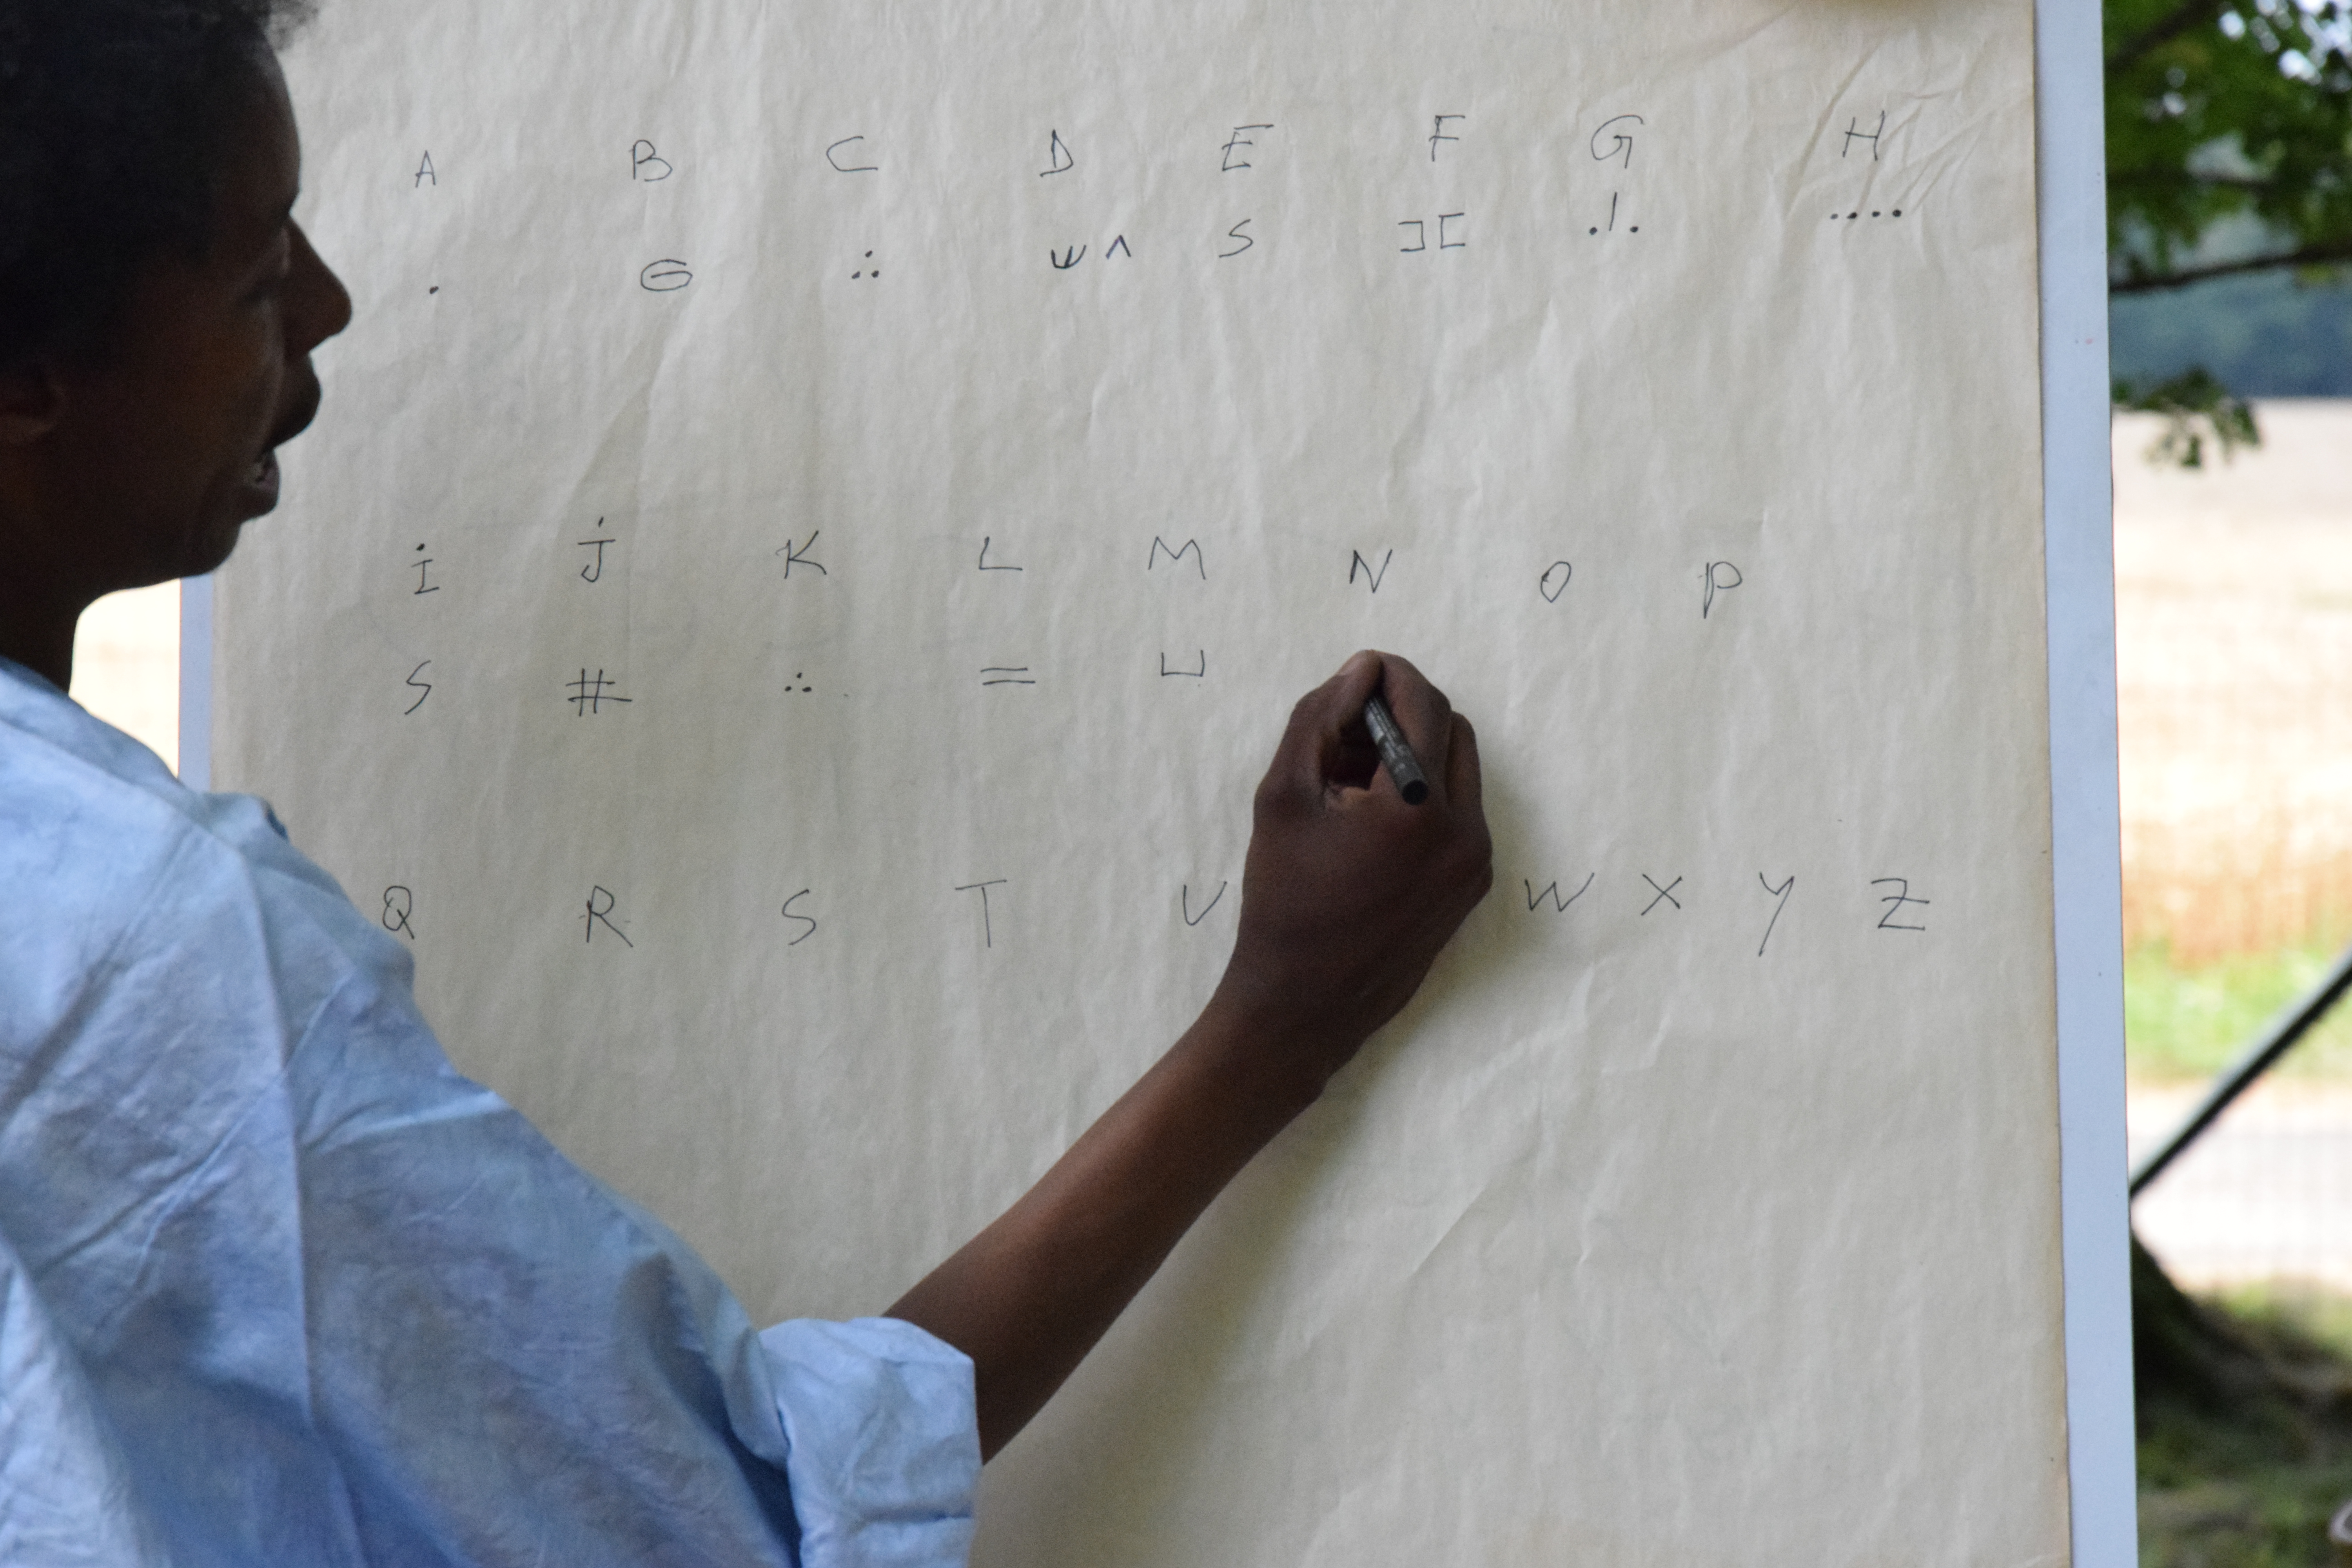 A B C D E F G H
. ⴱ ∴ ⵠ ^ S ⵊⵎ .|. ....
i J K L M N O P
S # ∴ = ⊔
Q R S T U W X Y Z